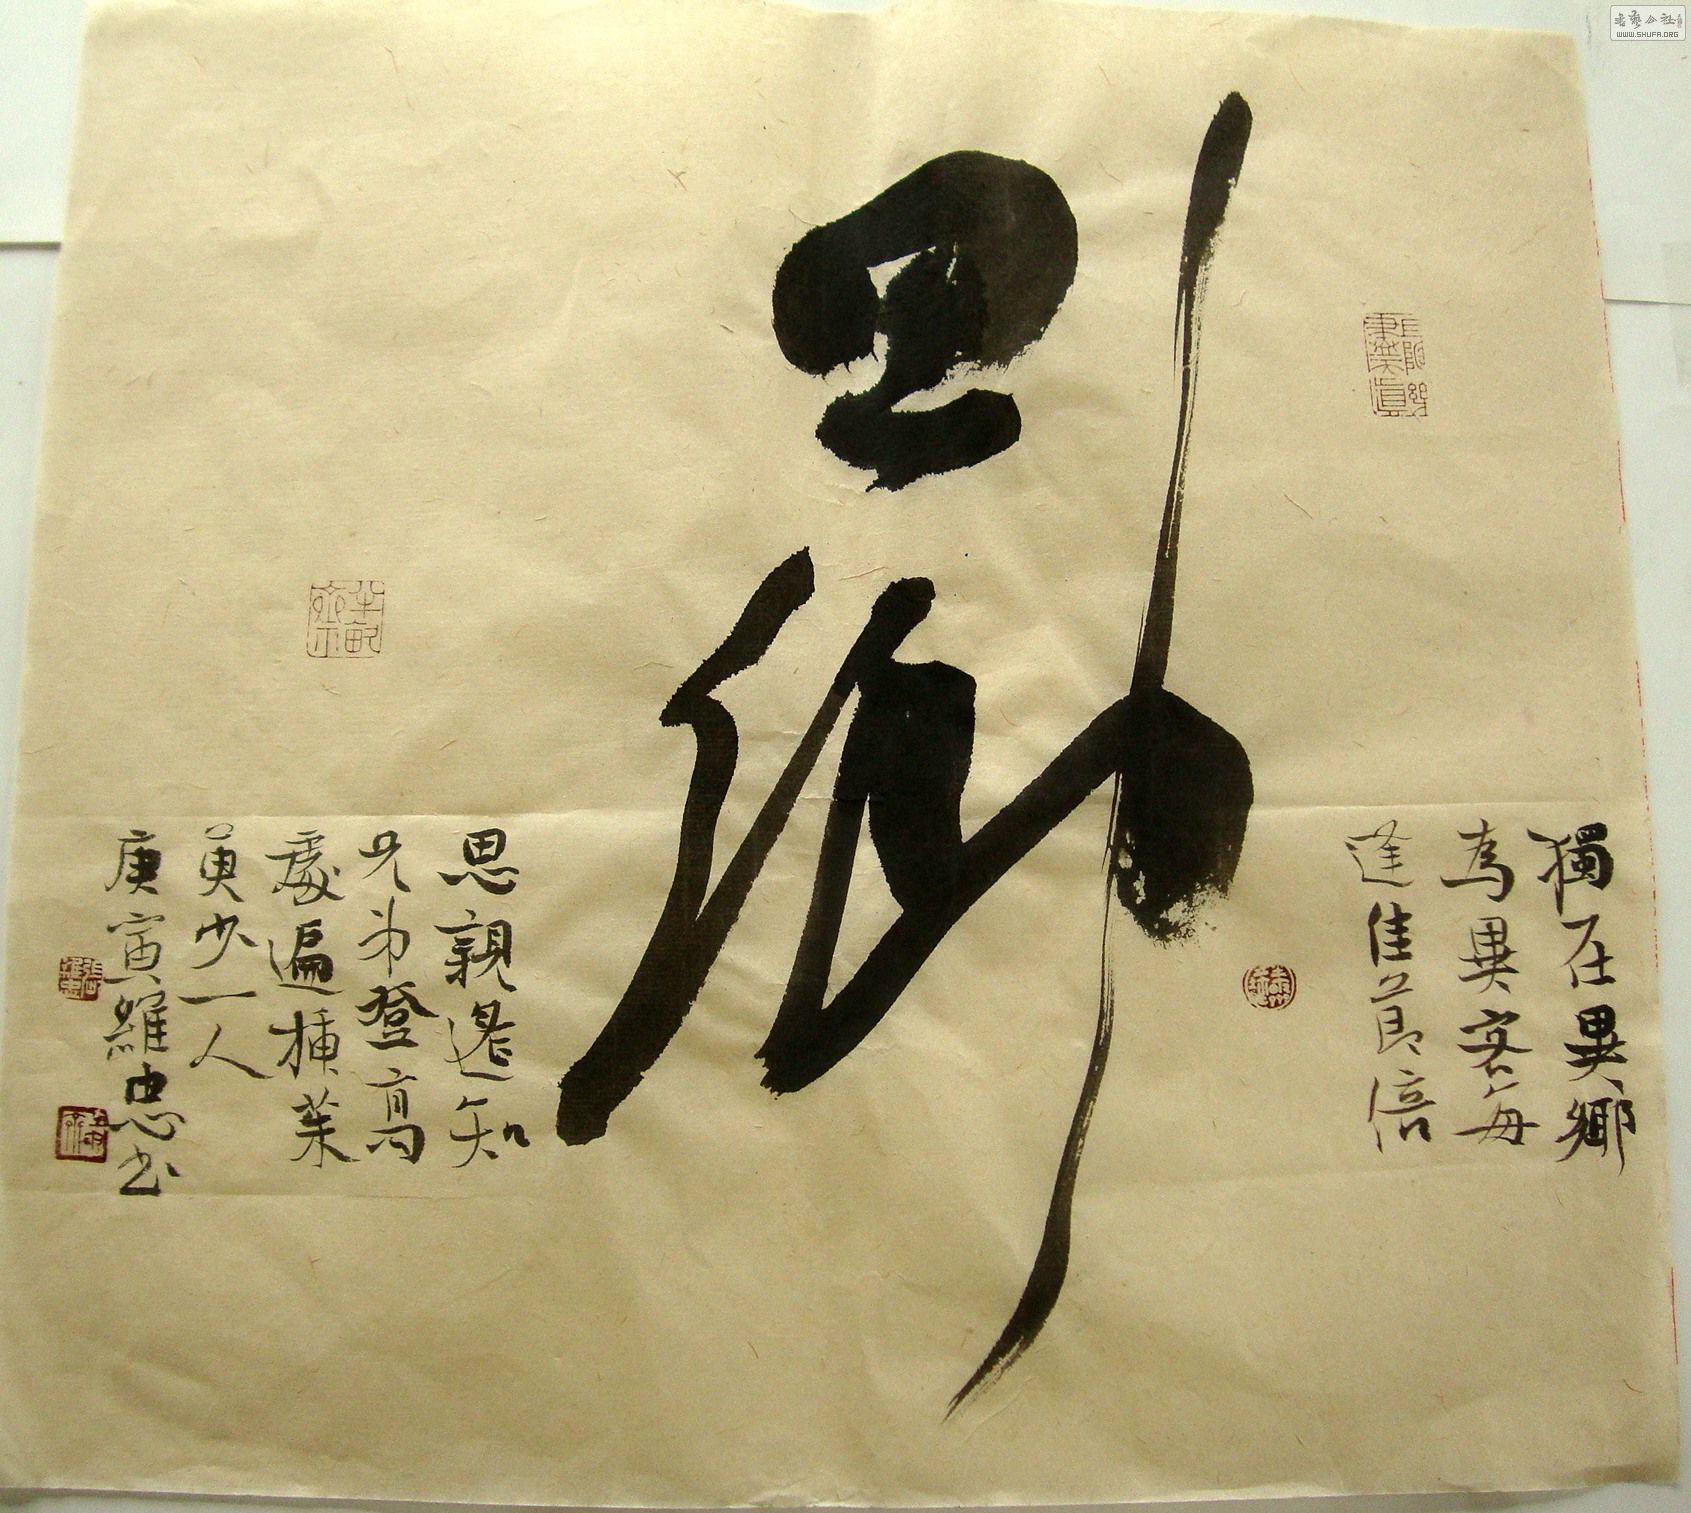 書藝公社
WWW.SHUFA.ORG
獨在異鄉
為異客每
逢佳節倍
思鄉
思親遙知
兄弟登高
處遍插茱
萸少一人
庚寅維忠书
半畝齋